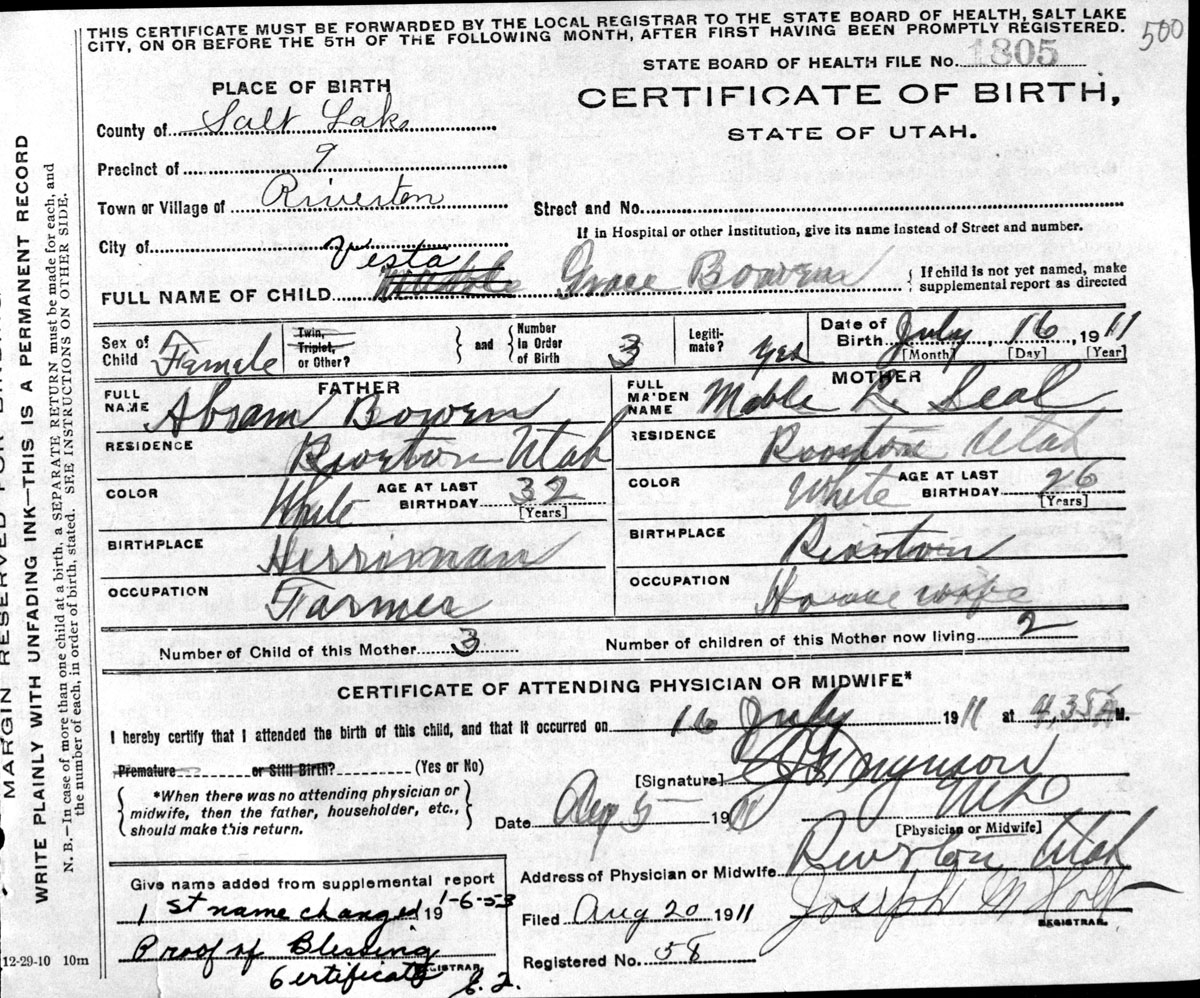 THIS CERTIFICATE MUST BE FORWARDED BY THE LOCAL REGISTRAR TO THE STATE BOARD OF HEALTH, SALT LAKE
CITY, ON OR BEFORE THE 5TH OF THE FOLLOWING MONTH, AFTER FIRST HAVING BEEN PROMPTLY REGISTERED.
500
STATE BOARD OF HEALTH FILE No. 1805
PLACE OF BIRTH
CERTIFICATE OF BIRTH,
STATE OF UTAH.
County of Salt Lake
Precinct of 9
Town or Village of Riverton
Street and No.
If in Hospital or other institution, give its name instead of Street and number.
City of
Vesta
FULL NAME OF CHILD Grace Bowen
If child is not yet named, make
supplemental report as directed
Sex of
Child Female
Twin,
Triplet,
or Other?
and
Number
in Order
of Birth 3
Legiti-
mate? yes
Date of
Birth July, 16, 1911
[Month] [Day] [Year]
FATHER
FULL
NAME Abram Bowen
MOTHER
FULL
MAIDEN
NAME Mable R. Seal
RESIDENCE Riverton Utah
RESIDENCE Riverton Utah
COLOR White
AGE AT LAST
BIRTHDAY 32
[Years]
COLOR White
AGE AT LAST
BIRTHDAY 26
[Years]
BIRTHPLACE Herriman
BIRTHPLACE Riverton
OCCUPATION Farmer
OCCUPATION House wife
Number of Child of this Mother 3
Number of children of this Mother now living 2
CERTIFICATE OF ATTENDING PHYSICIAN OR MIDWIFE*
I hereby certify that I attended the birth of this child, and that it occurred on 16 July 1911 at 4,35 A M.
Premature or Still Birth? (Yes or No)
[Signature]
*When there was no attending physician or
midwife, then the father, householder, etc.,
should make this return.
Date Aug 5 1911
MD
[Physician or Midwife]
Address of Physician or Midwife Riverton Utah
Give name added from supplemental report
1st name changed 19 1-6-53
Proof of Blessing
Certificate
REGISTRAR
E. J.
Filed Aug 20 1911
Joseph M Holt
REGISTRAR.
Registered No. 58
12-29-10 10m
MARGIN RESERVED FOR
WRITE PLAINLY WITH UNFADING INK—THIS IS A PERMANENT RECORD
N. B.—In case of more than one child at a birth, a SEPARATE RETURN must be made for each, and
the number of each, in order of birth, stated. SEE INSTRUCTIONS ON OTHER SIDE.